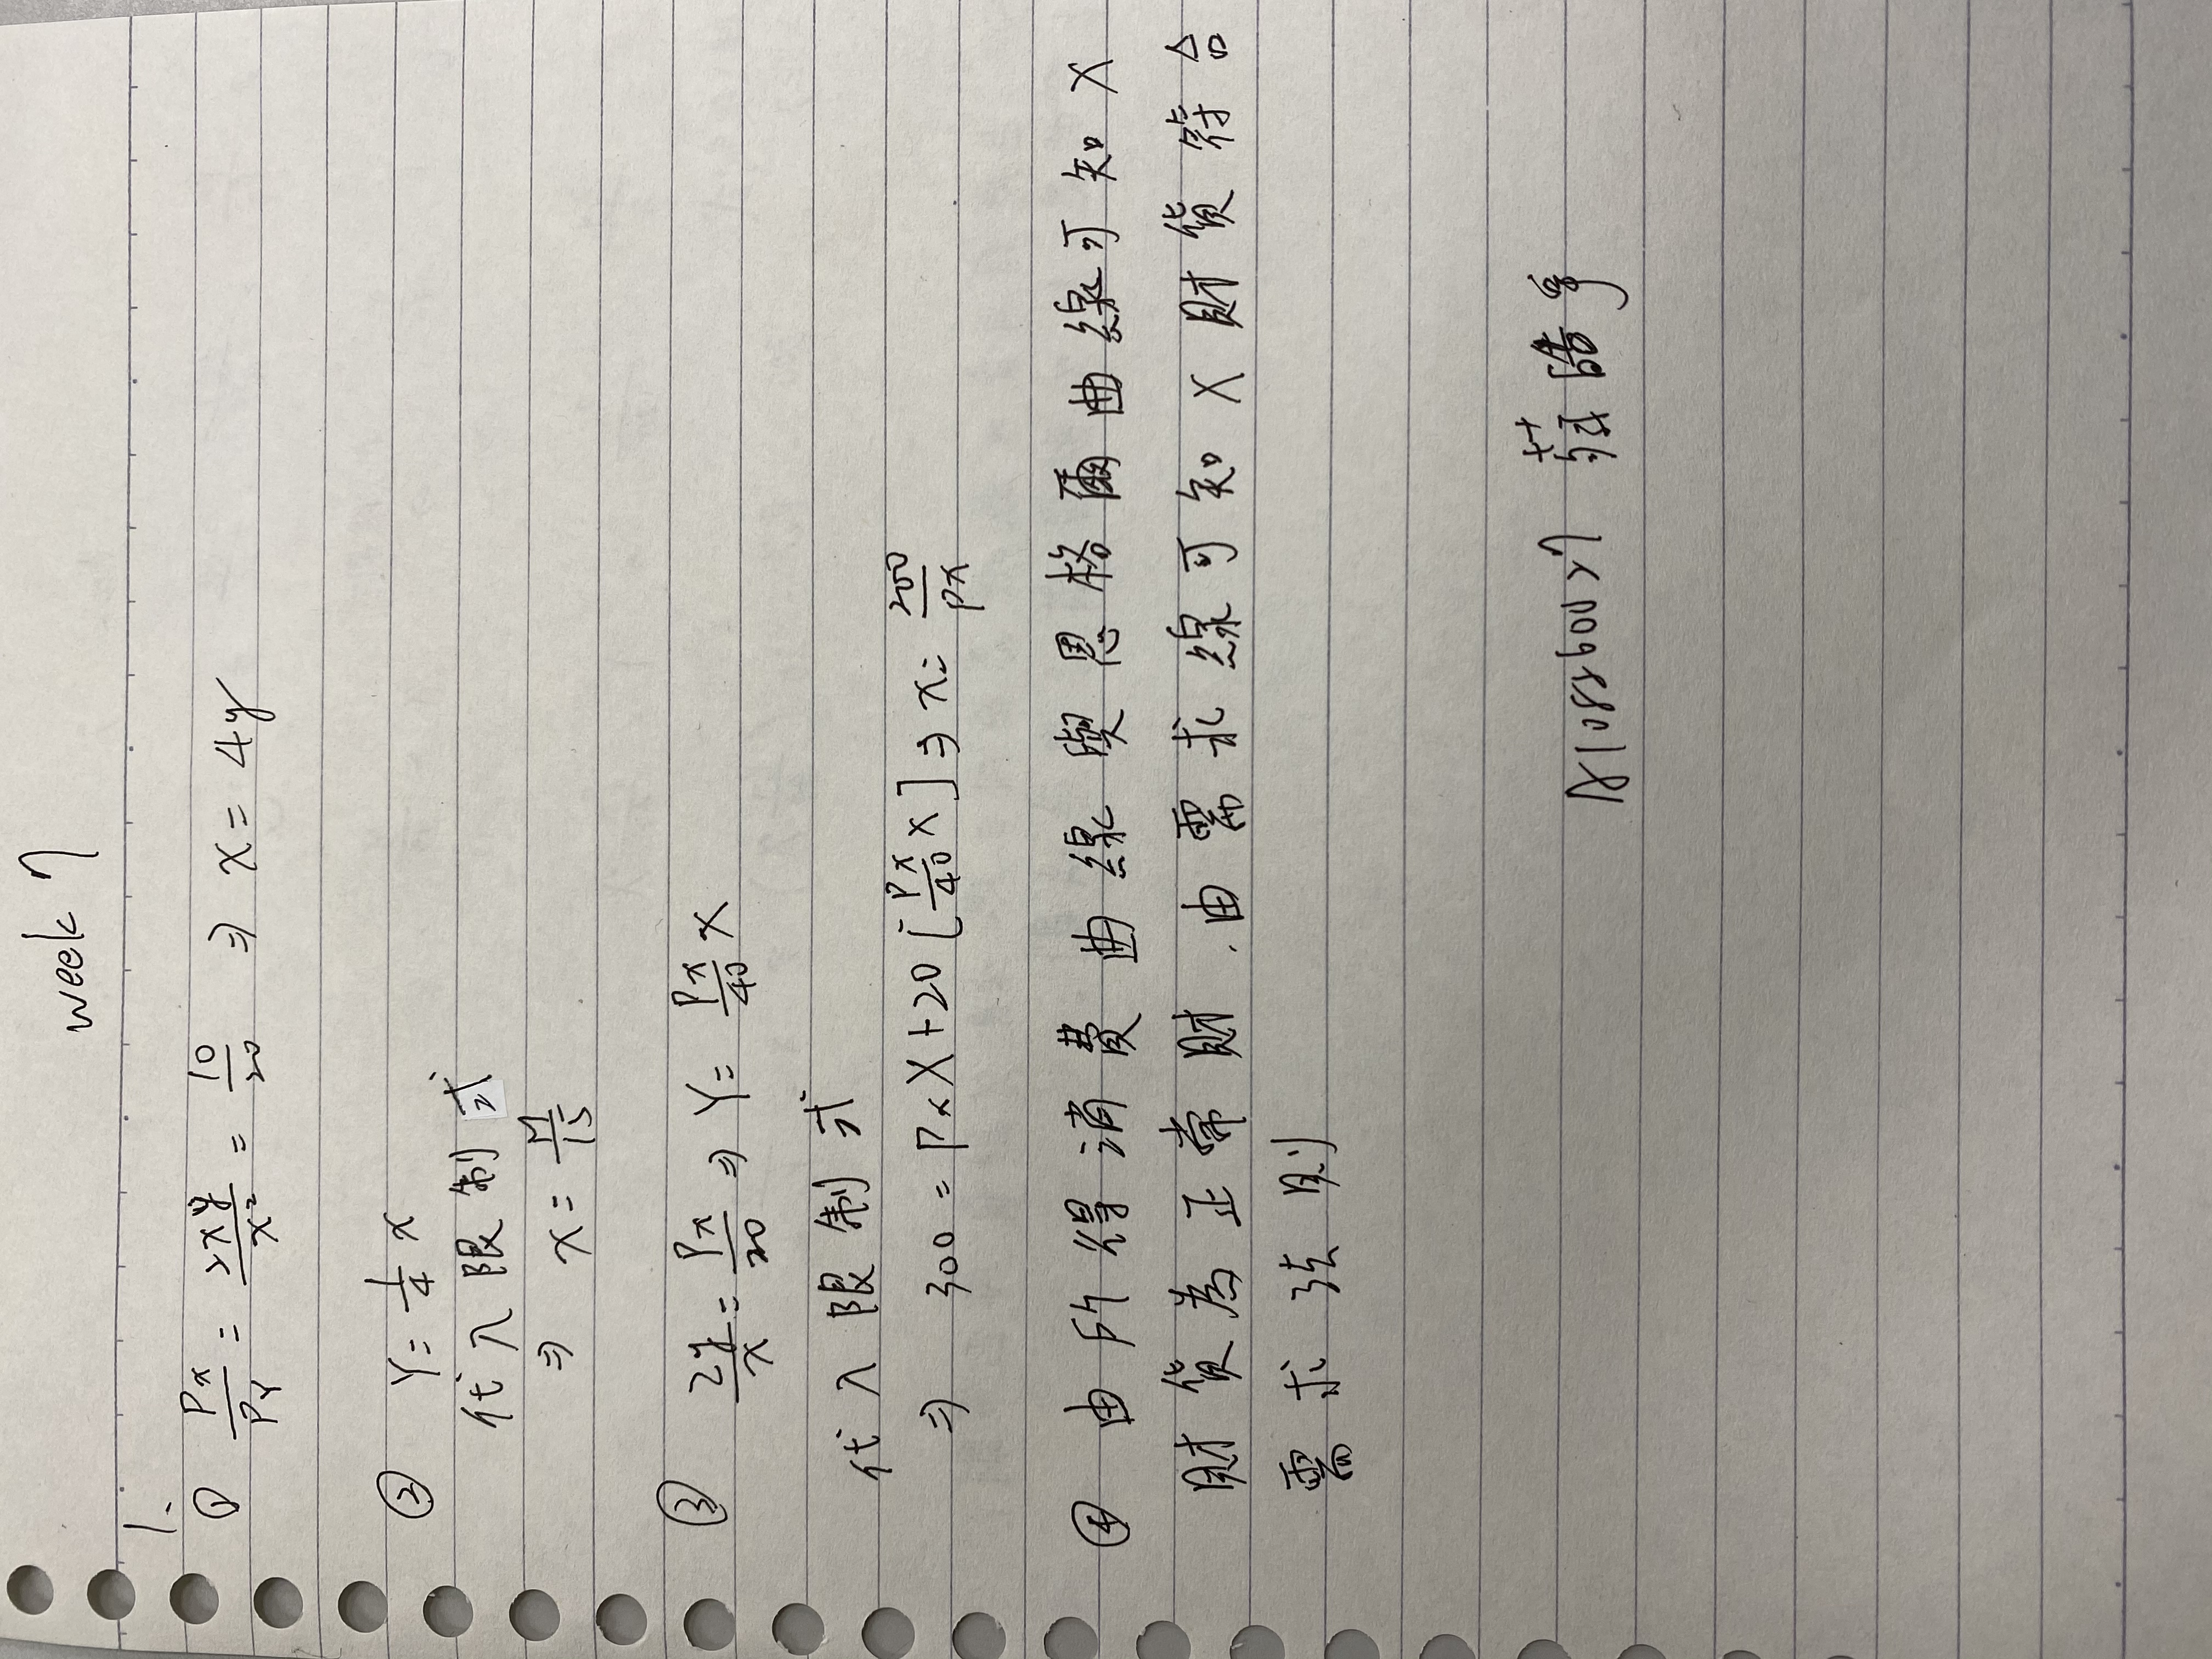 week 7
1.
① Px/PY = 2xy/x² = 10/20 ⇒ x = 4y
② Y = 1/4 x
代入限制式
⇒ x = M/15
③ 2y/x = Px/20 ⇒ Y = Px/40 X
代入限制式
⇒ 300 = PxX + 20 [Px/40 X] ⇒ x = 200/Px
④ 由所得消費曲線與恩格爾曲線可知X
財貨為正常財.由需求線可知X財貨符合
需求法則
蘇皓宇